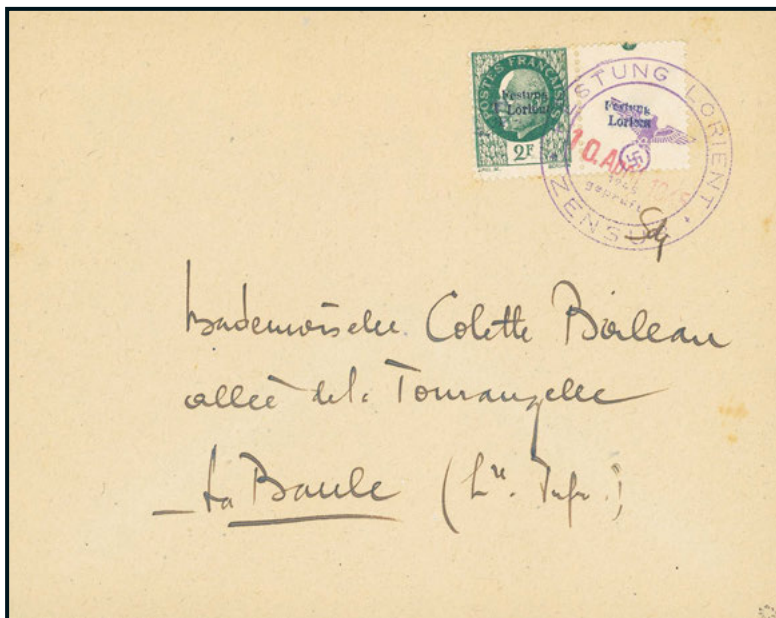 POSTES FRANÇAISES
Festung
Lorient
2F
Festung
Lorient
STUNG LORIENT
10. APR. 1945
1945
geprüft
ZENSU
Mademoiselle Colette Boileau
allée de la Tourangelle
La Baule (Lre. Infr.)